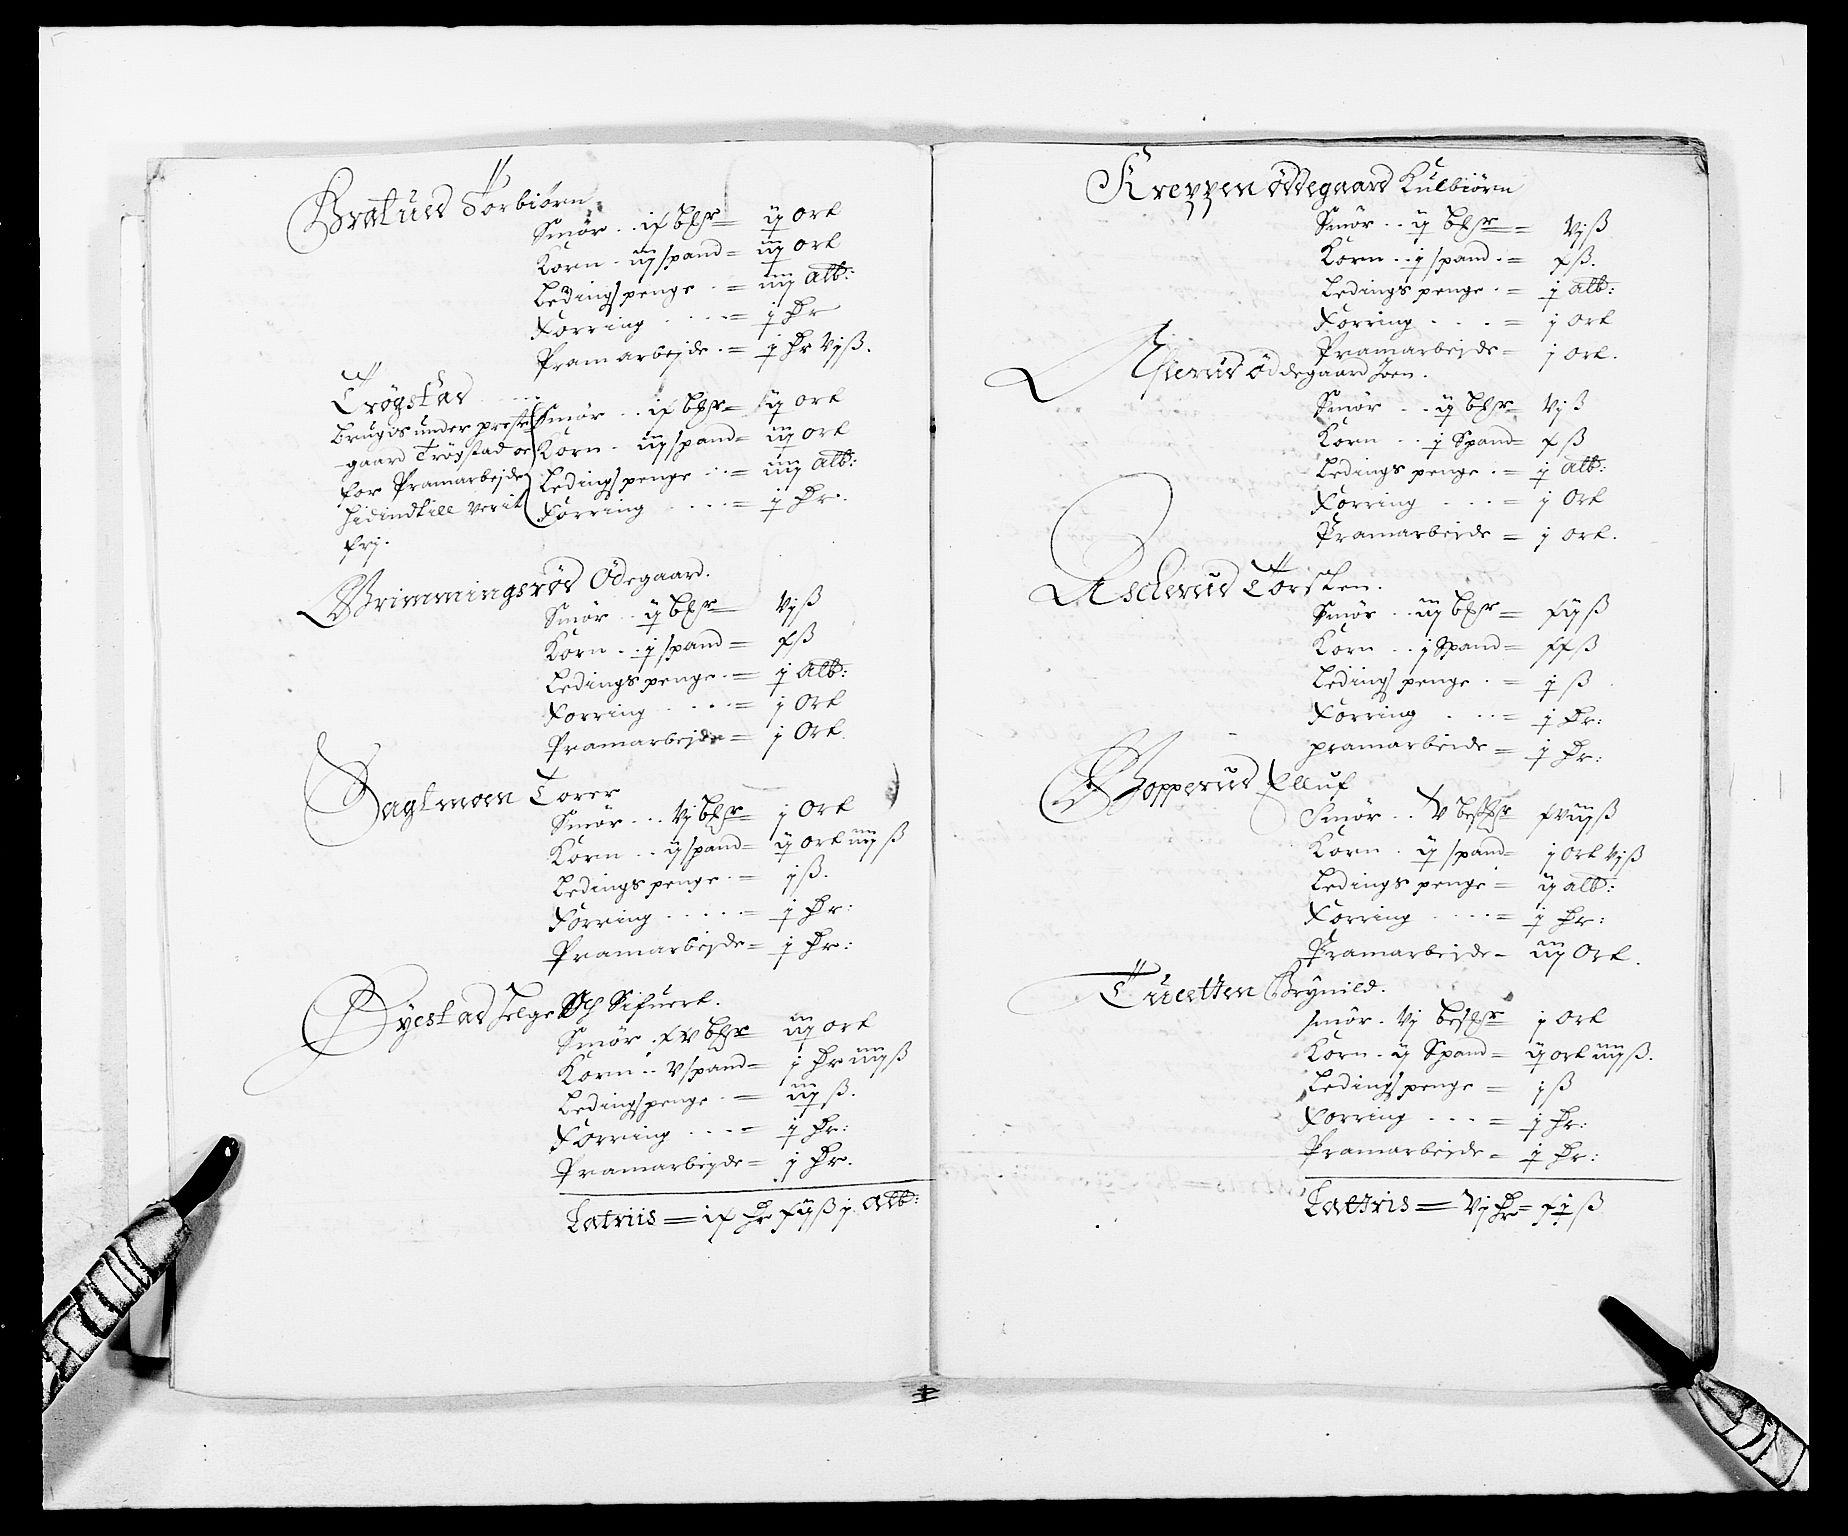 Bratued Torbiørn
Smør . . ix bpr = ij ort
Korn . iiij spand = iiij ort
Ledings penge . = iiij alb:
Forring . . . . = j Dr
Pramarbejde . = j Dr vj ß.
Trøgstad . . . .
brugis under preste
gaard Trøgstad oc
for Pramarbejde
hidindtill verit
frj.
Smør . . ix bpr = ij ort
Korn . iiij spand = iiij ort
Ledings penge . . = iiij alb:
Forring . . . . = j Dr.
Grimmingsrød Ødegaard.
Smør . . ij bpr = vj ß
Korn . . j spand = x ß
Ledings penge . = j alb:
Forring . . . . = j ort
Pramarbejde = j ort.
Sagtmoen Torer
Smør . . . vj bpr = j ort
Korn . . ij spand = ij ort iiij ß
Ledings penge . = j ß.
Forring . . . . . = j Dr:
Pramarbejde = j Dr:
Øyestad Helge Och Sifuert.
Smør . xv bpr = iij ort
Korn . . v spand = j Dr iiij ß
Ledings penge . = iij ß.
Forring . . . . = j Dr:
Pramarbejde = j Dr.
Latriis = ix Dr xij ß j alb:
Kreppen Øddegaard Kulbiørn
Smør . . ij bpr = vj ß
Korn . . j spand . = x ß.
Ledings penge . = j alb:
Forring . . . = j ort
Pramarbejde = j ort.
Øddegaard Joen.
Smør . . ij bpr = vj ß
Korn . . j Spand = x ß
Ledings penge . = j alb:
Forring . . . = j ort
Pramarbejde = j ort.
Asclerud Torsten.
Smør . . iiij bpr = xij ß
Korn . . j Spand = xx ß
Ledings penge . = j ß
Forring . . . = j Dr:
pramarbejde = j Dr:
Gopperud Elluf
Smør . . v bespr xviij ß
Korn . ij spand = j ort vj ß
Ledings penge = ij alb:
Forring . . . . = j Dr:
Pramarbejde = iij ort.
Tuetten Brynild.
smør . vj bespr j ort
Korn . ij Spand = ij ort iiij ß.
Ledings penge = j ß
Forring . . . = j Dr:
Pramarbejde = j Dr:
Lattris = vj Dr = xj ß